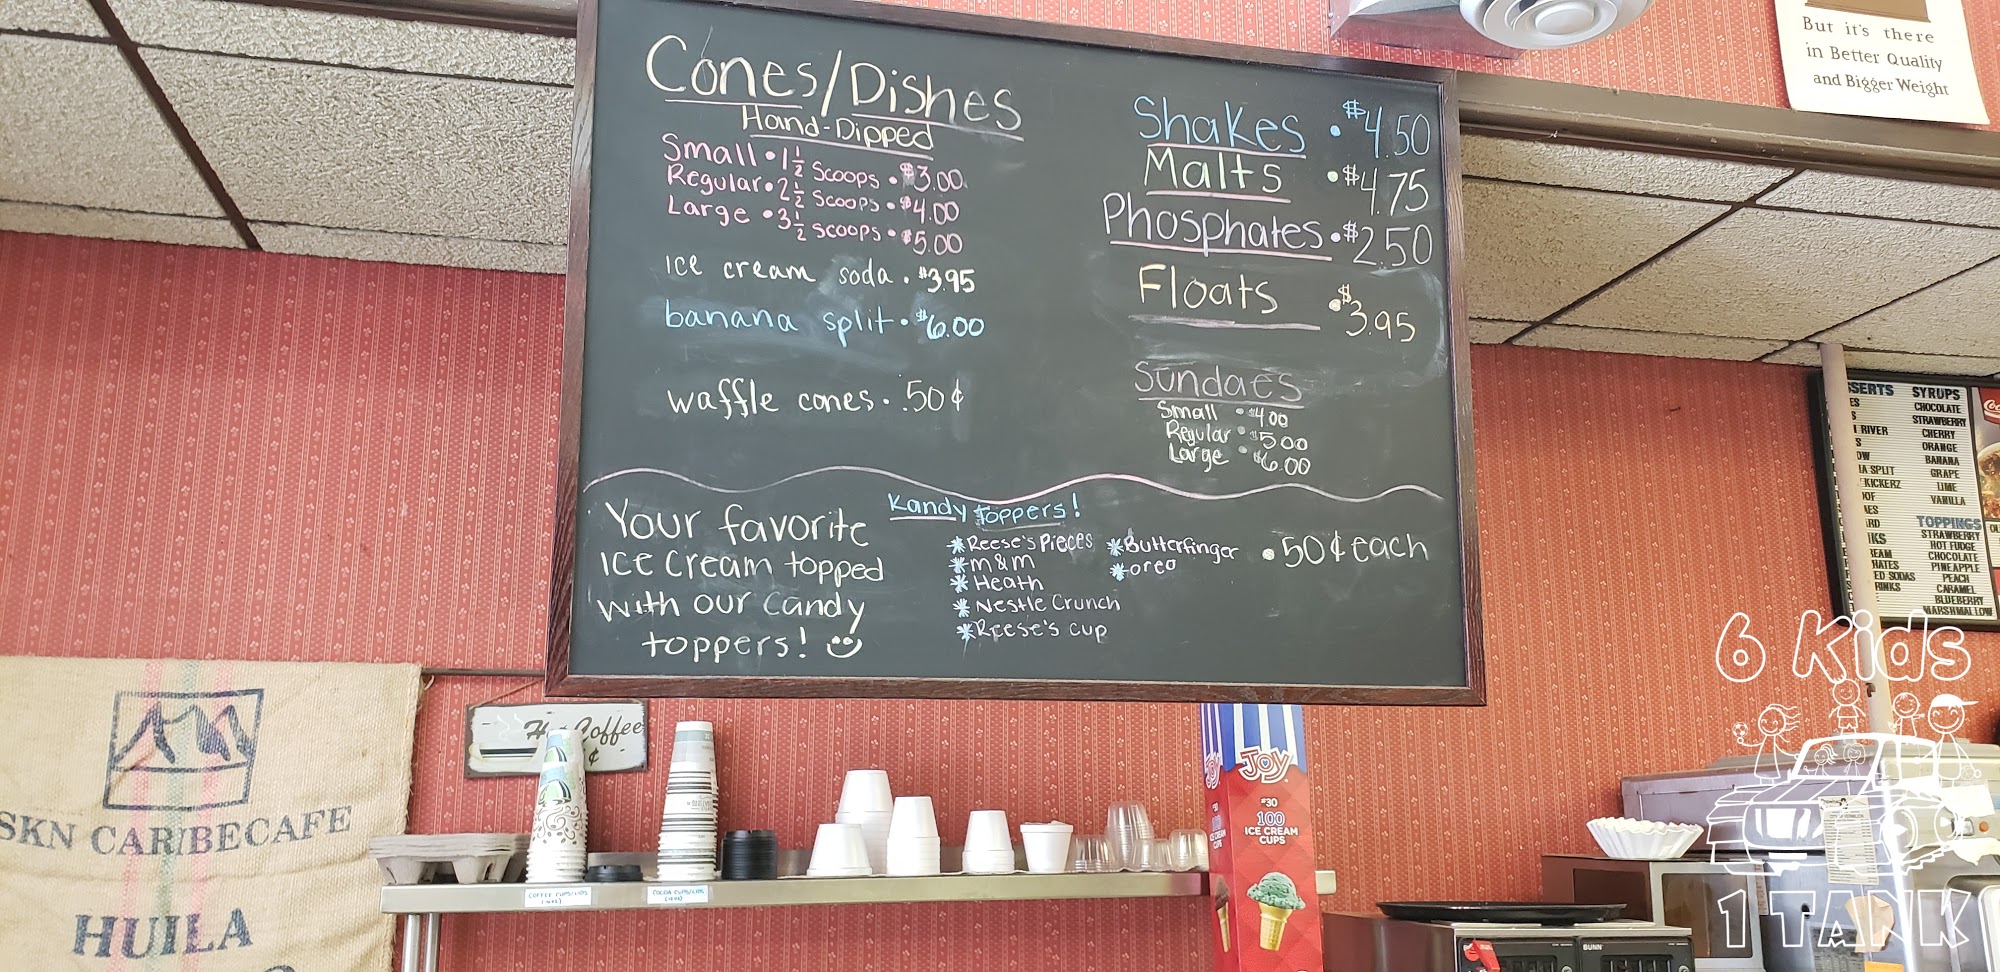 Cones/Dishes
Hand-Dipped
Small • 1 1/2 Scoops • $3.00
Regular • 2 1/2 Scoops • $4.00
Large • 3 1/2 scoops • $5.00
ice cream soda • $3.95
banana split • $6.00
waffle cones • .50¢
Shakes • $4.50
Malts • $4.75
Phosphates • $2.50
Floats • $3.95
Sundaes
Small • $4.00
Regular • $5.00
Large • $6.00
Your favorite
Ice Cream topped
with our candy
toppers!
Kandy toppers!
* Reese's Pieces
* m&m
* Heath
* Nestle Crunch
* Reese's cup
* Butterfinger
* oreo
• 50¢ each
But it's there
in Better Quality
and Bigger Weight
SYRUPS
CHOCOLATE
STRAWBERRY
CHERRY
ORANGE
BANANA
GRAPE
LIME
VANILLA
TOPPINGS
STRAWBERRY
HOT FUDGE
CHOCOLATE
PINEAPPLE
PEACH
CARAMEL
BLUEBERRY
MARSHMALLOW
RIVER
SPLIT
SODAS
Coffee
¢
SKN CARIBECAFE
HUILA
COFFEE CUPS/LIDS
COCOA CUPS/LIDS
JOY
#30
100
ICE CREAM
CUPS
BUNN
6 Kids
1 TANK